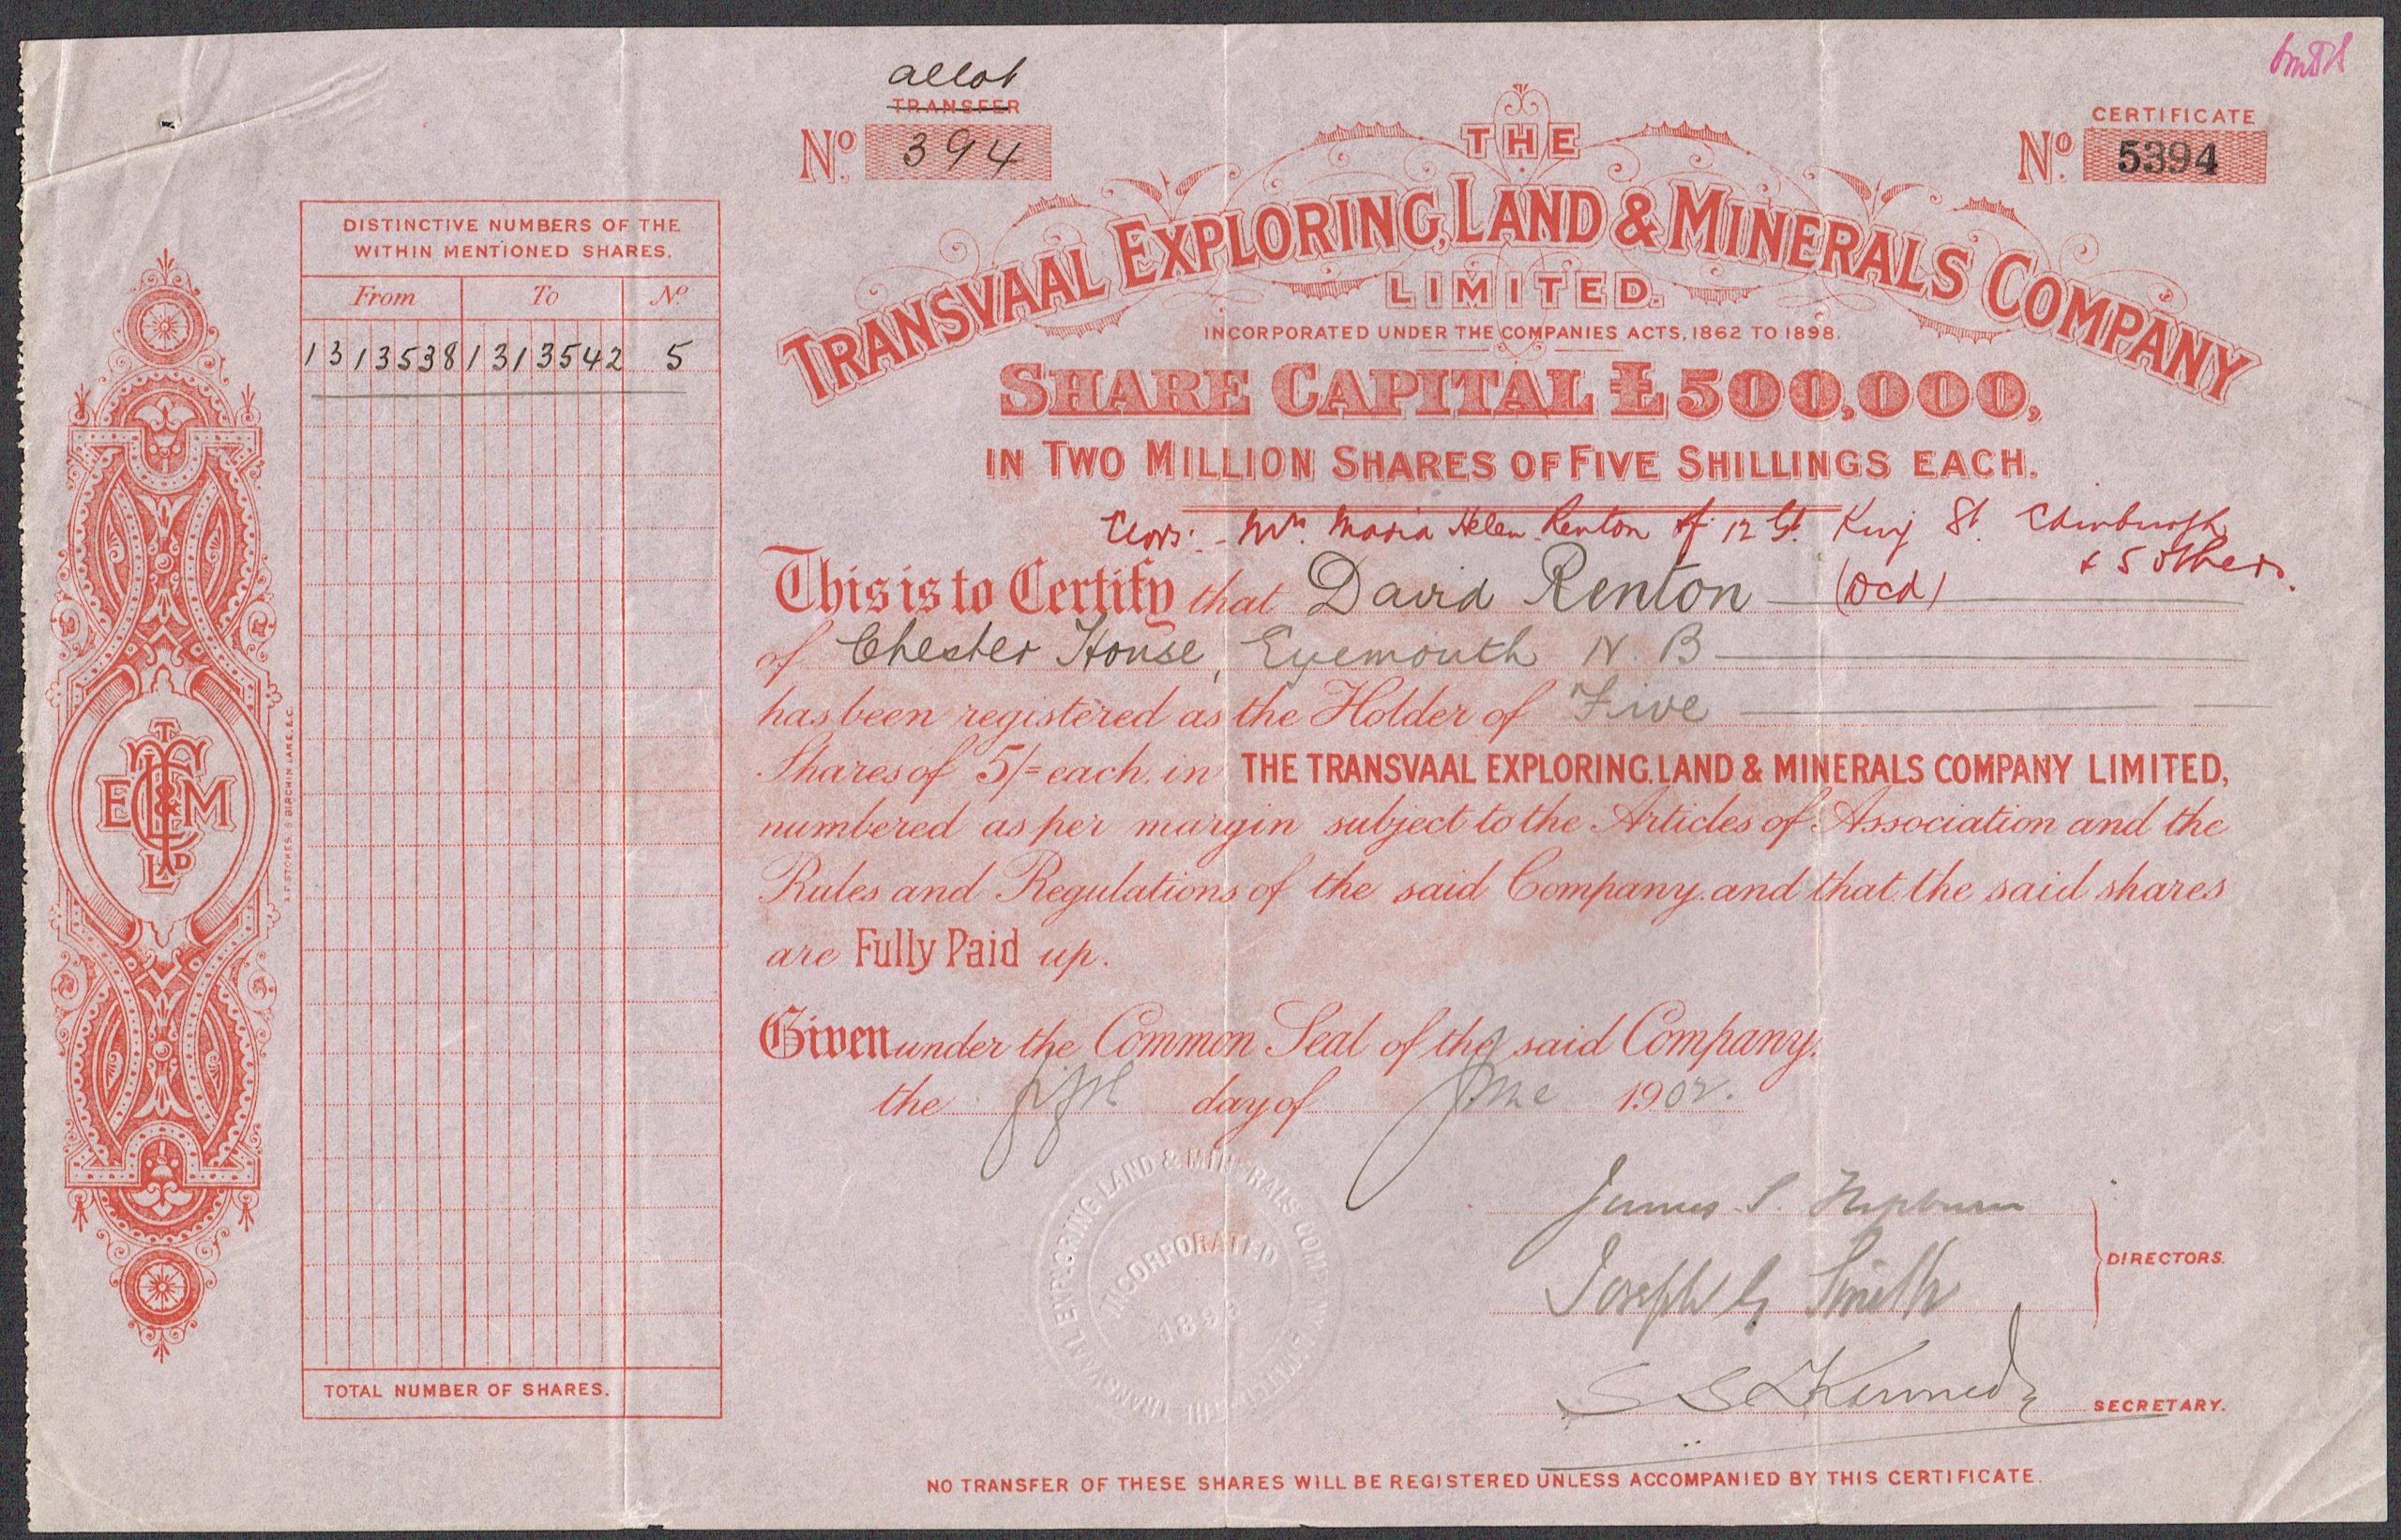 allot
TRANSFER
Nº 394
CERTIFICATE
Nº 5394
THE
TRANSVAAL EXPLORING, LAND & MINERALS COMPANY
LIMITED.
INCORPORATED UNDER THE COMPANIES ACTS, 1862 TO 1898.
SHARE CAPITAL £500,000,
IN TWO MILLION SHARES OF FIVE SHILLINGS EACH.
Maria Helen Renton of 12 King St. Edinburgh
& 5 others.
This is to Certify that David Renton (Decd)
of Chester House, Eyemouth N.B
has been registered as the Holder of Five
Shares of 5/= each in THE TRANSVAAL EXPLORING, LAND & MINERALS COMPANY LIMITED,
numbered as per margin subject to the Articles of Association and the
Rules and Regulations of the said Company. and that the said shares
are Fully Paid up.
Given under the Common Seal of the said Company.
the fifth day of June 1902.
James S. Hepburn
Joseph G Smith
DIRECTORS.
Kennedy
SECRETARY.
NO TRANSFER OF THESE SHARES WILL BE REGISTERED UNLESS ACCOMPANIED BY THIS CERTIFICATE.
DISTINCTIVE NUMBERS OF THE
WITHIN MENTIONED SHARES.
From To Nº
1313538 1313542 5
TOTAL NUMBER OF SHARES.
T
E L & M
C
LD
A.F. STOKES, 5 BIRCHIN LANE, E.C.
THE TRANSVAAL EXPLORING LAND & MINERALS COMPANY LIMITED
INCORPORATED